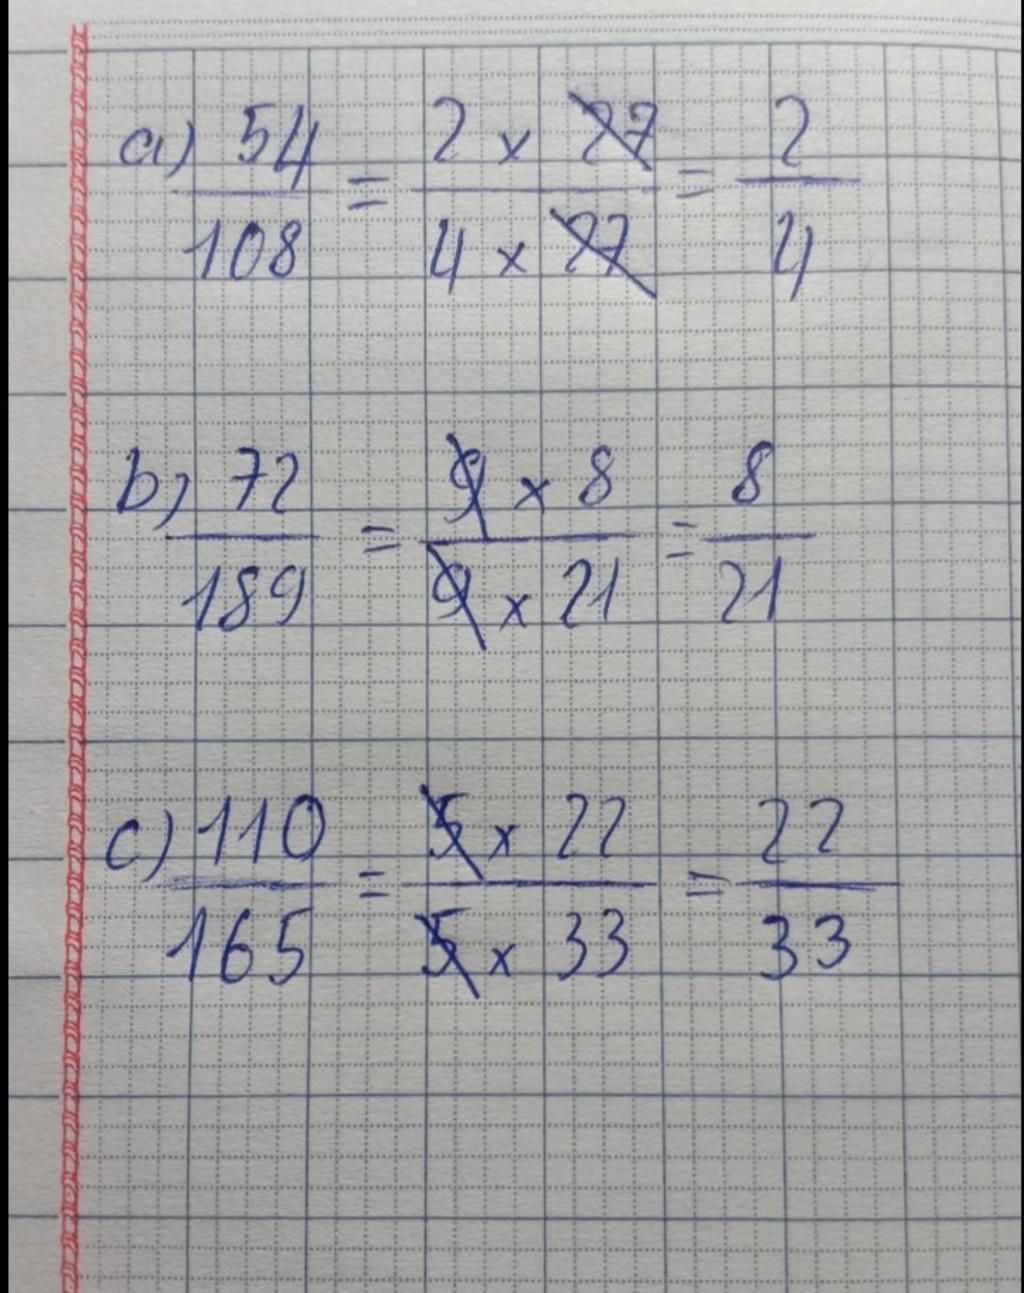 a) 54/108 = 2 x 27/4 x 27 = 2/4
b) 72/189 = 9 x 8/9 x 21 = 8/21
c) 110/165 = 5 x 22/5 x 33 = 22/33